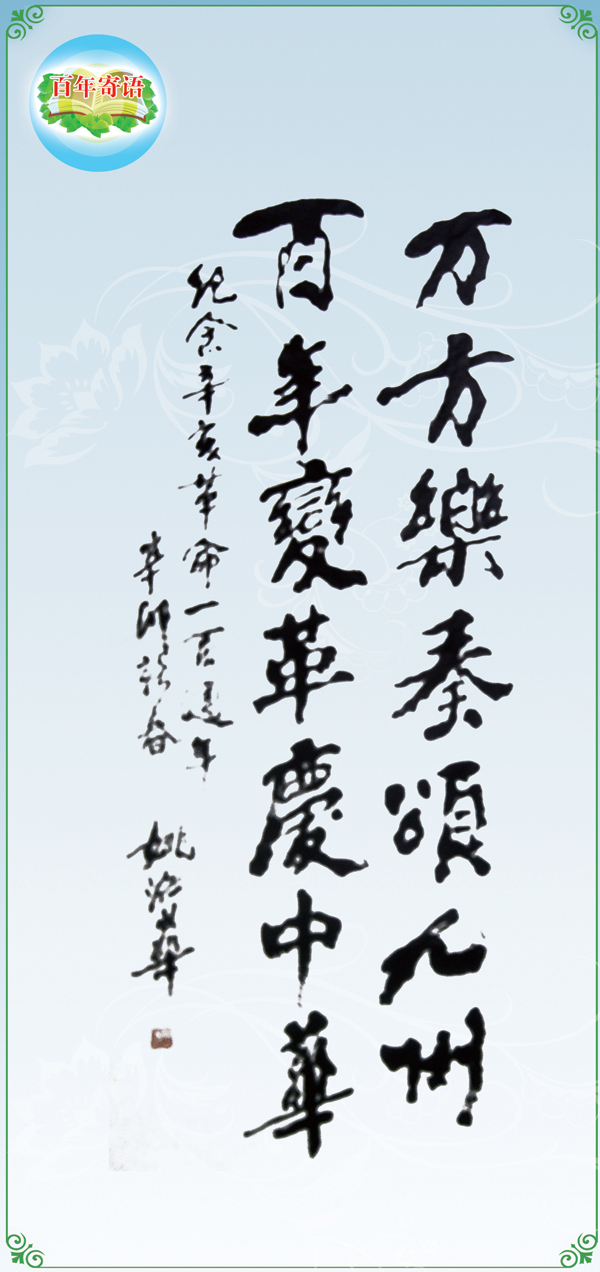 百年寄语
万方樂奏頌九州
百年變革慶中華
纪念辛亥革命一百週年
辛卯
姚
華